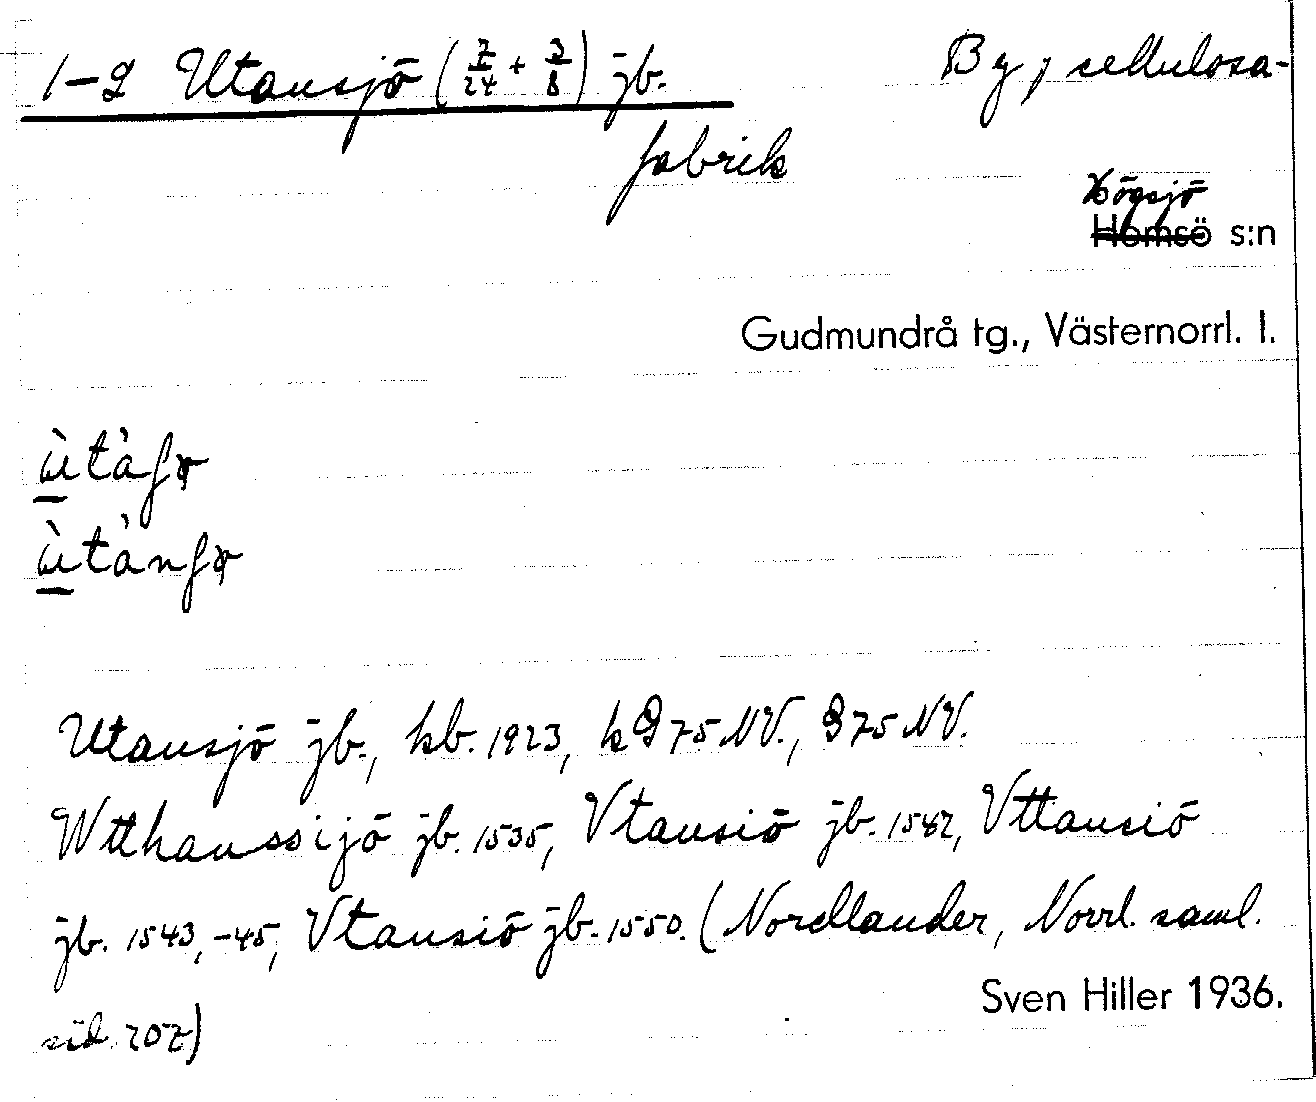 1-2 Utansjö (7/24 + 3/8) jb. By, cellulosa-
fabrik
Högsjö
Hemsö s:n
Gudmundrå tg., Västernorrl. l.
Utansjö jb., kb. 1923, 75 NV., 75 NV.
Wtthanssijö jb. 1535, Vtansiö jb. 1542, Vttansiö
jb. 1543, -45, Vtansiö jb. 1550. (Nordlander, Norrl. saml.
sid. 207)
Sven Hiller 1936.